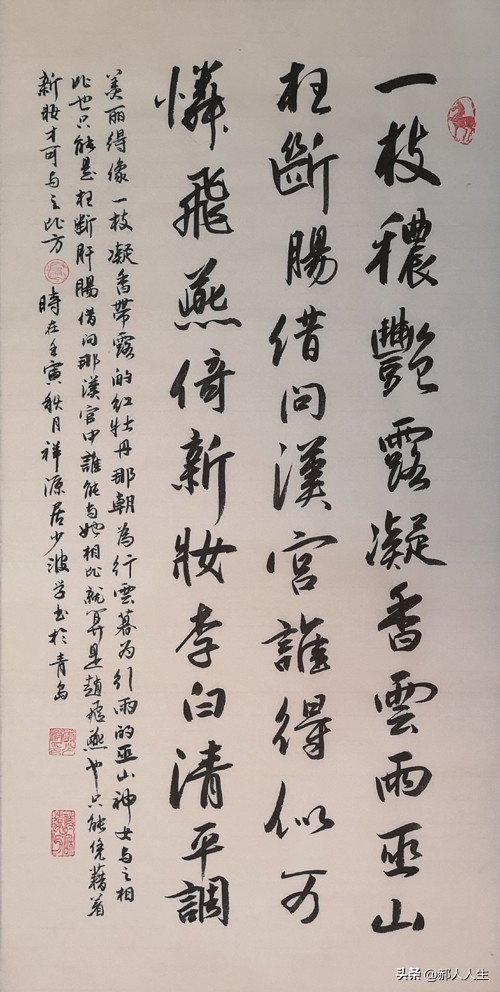 一枝穠艷露凝香雲雨巫山
枉斷腸借问漢宫誰得似可
憐飛燕倚新妝李白清平調
美丽得像一枝凝香帶露的红牡丹那朝為行雲暮为引雨的巫山神女与之相
比也只能是枉断肝腸借问那漢宫中誰能与她相比就算是趙飛燕也只能凭藉着
新妝才可与之比方 時在壬寅秩月祥源居少波学书於青岛
头条 @郝人人生